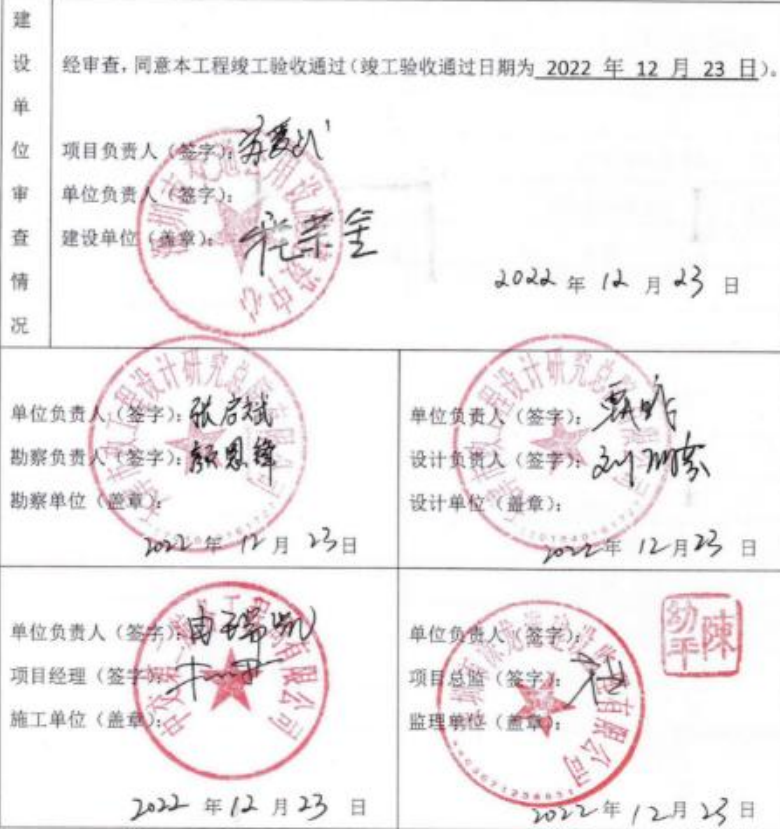 建设单位审查情况
经审查,同意本工程竣工验收通过(竣工验收通过日期为 2022 年 12 月 23 日)。
项目负责人(签字):
单位负责人(签字):
建设单位(盖章):
2022 年 12 月 23 日
单位负责人(签字):张启斌
勘察负责人(签字):颜恩锋
勘察单位(盖章):
2022 年 12 月 23 日
单位负责人(签字):
设计负责人(签字):
设计单位(盖章):
2022 年 12 月 23 日
单位负责人(签字):
项目经理(签字):
施工单位(盖章):
2022 年 12 月 23 日
单位负责人(签字):
陳幼平
项目总监(签字):
监理单位(盖章):
2022 年 12 月 23 日